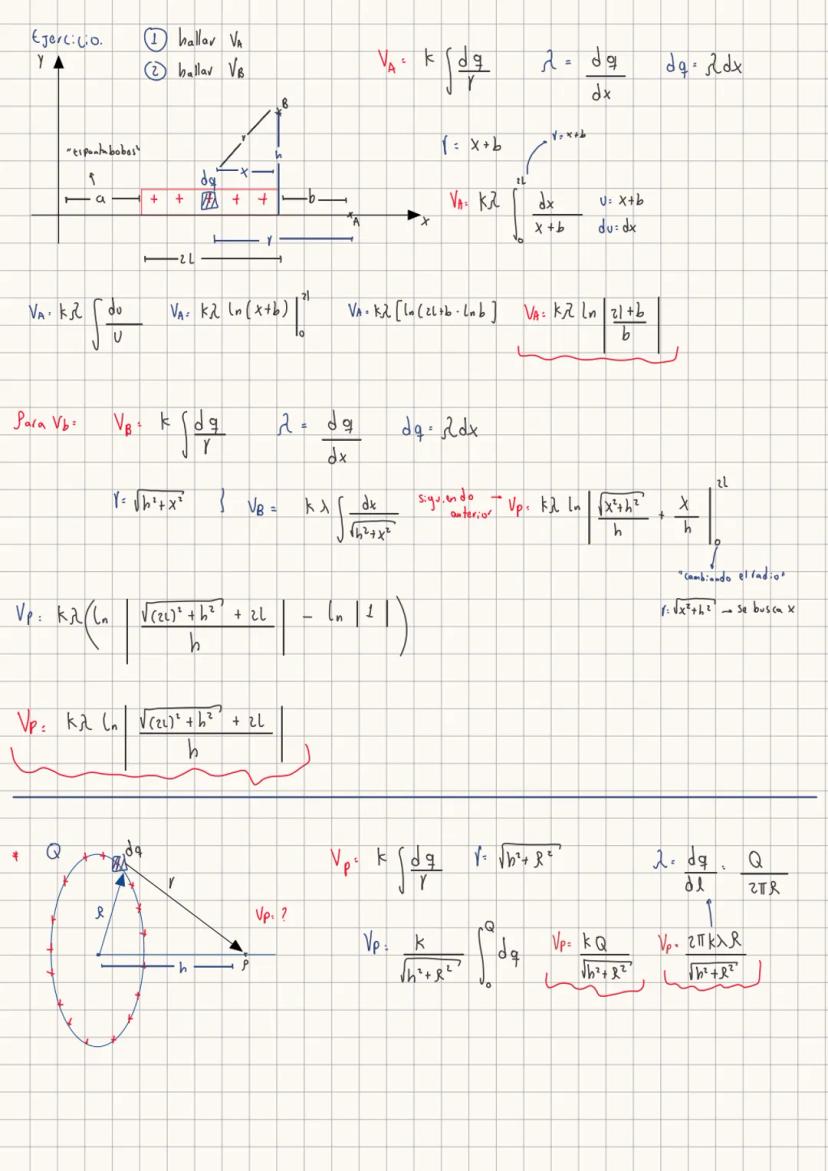 Ejercicio.
① hallar V_A
② hallar V_B
V_A = k ∫ dq/r    λ = dq/dx    dq = λdx
Y
B
r
h
"espantabobos"
dq
x
a
+ + + + +
b
A
x
r
2L
r = x+b
r = x+b
V_A = kλ ∫_0^{2L} dx/(x+b)    u = x+b
du = dx
V_A = kλ ∫ du/u    V_A = kλ ln(x+b) |_0^{2l}    V_A = kλ [ln(2L+b - lnb]    V_A = kλ ln |(2l+b)/b|
Para Vb =    V_B = k ∫ dq/r    λ = dq/dx    dq = λdx
r = √(h²+x²)  }  V_B = kλ ∫ dx/√(h²+x²)    siguiendo anterior → Vp = kλ ln |√(x²+h²)/h + x/h| |_0^{2L}
"cambiando el radio"
r = √(x²+h²) → se busca x
Vp = kλ (ln |(√((2L)²+h²) + 2L)/h| - ln |1|)
Vp = kλ ln |(√((2L)²+h²) + 2L)/h|
* Q    dq
r
R
Vp = ?
h
P
Vp = k ∫ dq/r    r = √(h²+R²)    λ = dq/dl = Q/2πR
Vp = k/√(h²+R²) ∫_0^Q dq    Vp = kQ/√(h²+R²)    Vp = 2πkλR/√(h²+R²)